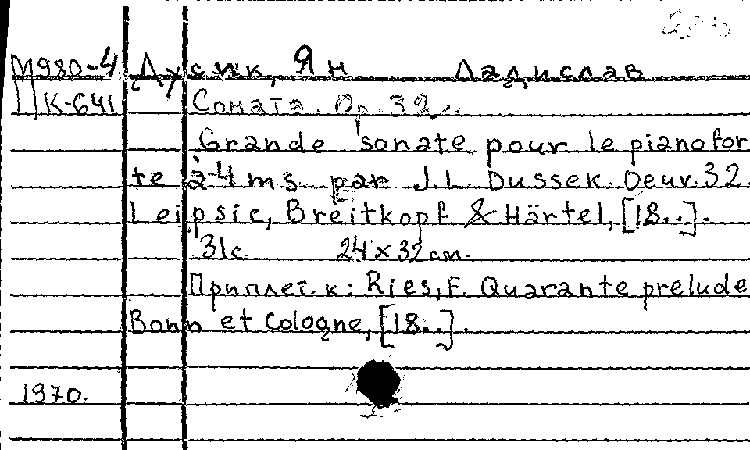 М980-4 Дусик, Ян Ладислав
П К-641 Соната. Op. 32.
Grande sonate pour le pianofor
te à 4 ms par J. L. Dussek. Oeuv. 32.
Leipsic, Breitkopf & Härtel, [18..].
31с. 24×32 см.
Приплет. к: Ries, F. Quarante prelude
Bonn et Cologne, [18..].
1970.